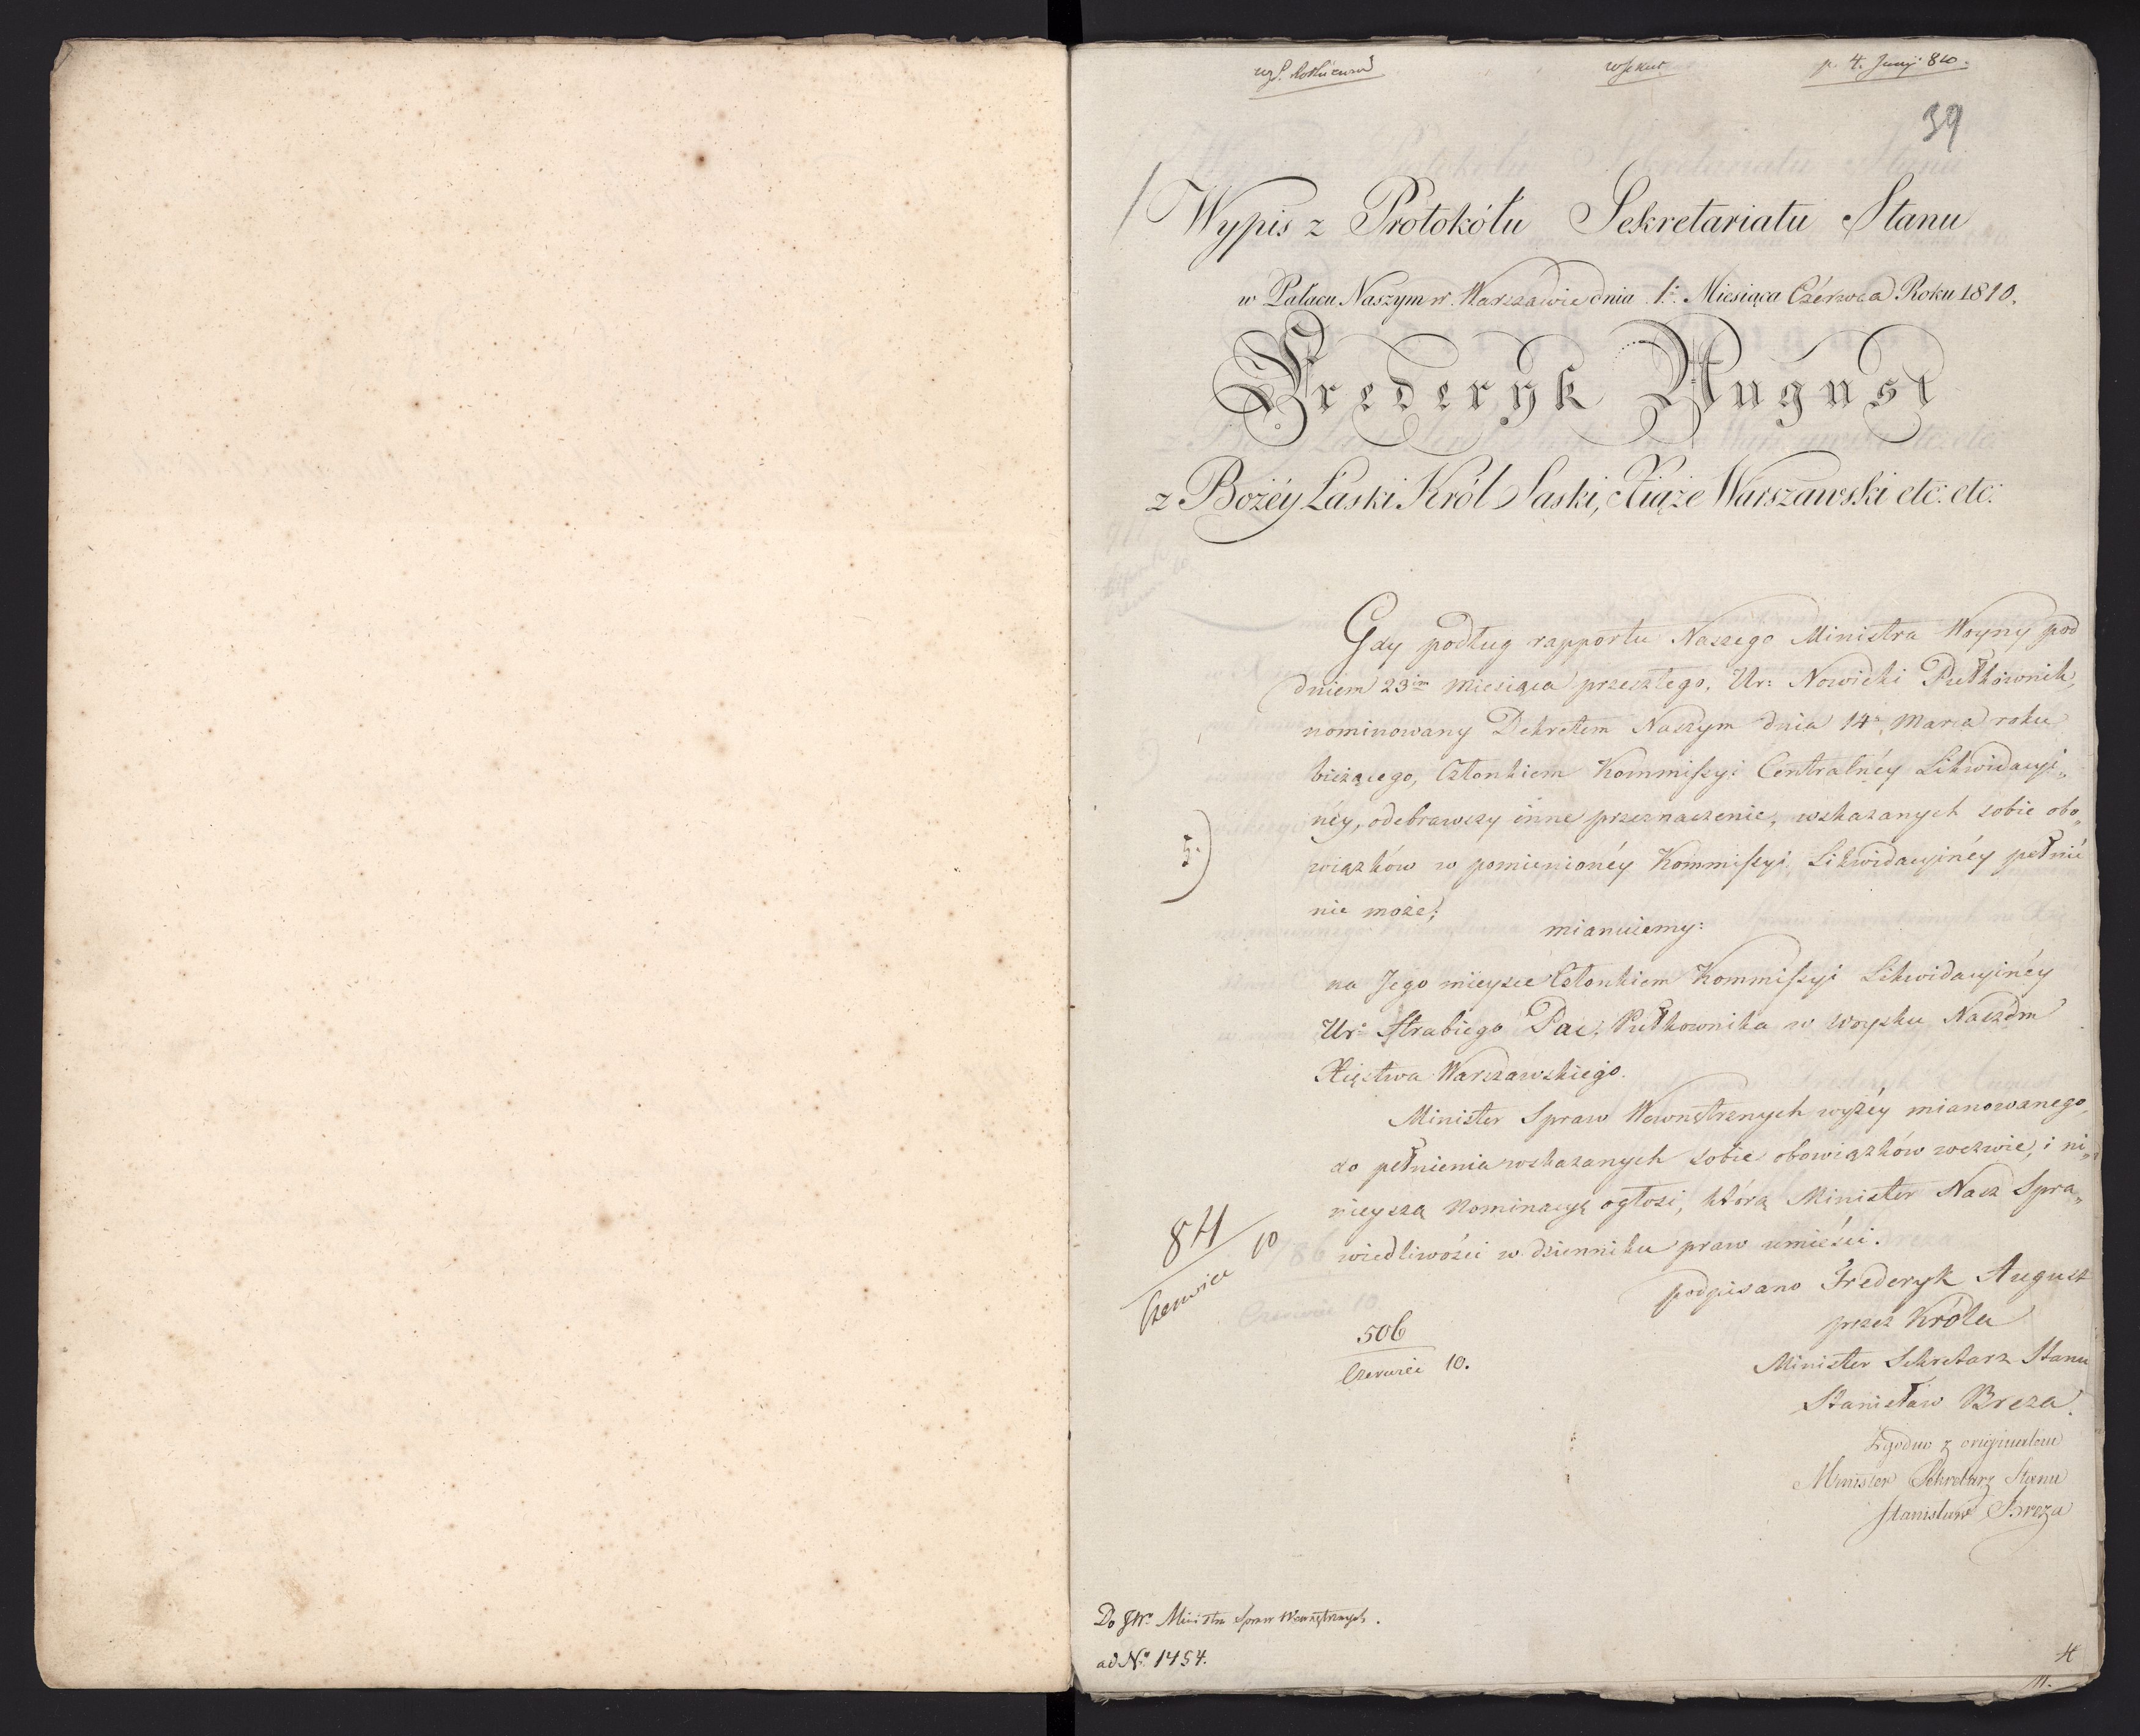 p. 4. Junij 810.
39
Wypis z Protokółu Sekretariatu Stanu
w Pałacu Naszym w Warszawie dnia 1. Miesiąca Czérwca Roku 1810.
Frederyk August
z Bożéy Łaski Król Saski, Xiąże Warszawski etc. etc.
Gdy podług rapportu Naszego Ministra Woyny pod
dniem 23im miesiąca przeszłego, Ur: Nowicki Pułkownik,
nominowany Dekretem Naszym dnia 14. Marca roku
bieżącego, Członkiem Kommissyi Centralnéy Likwidacyi„
néy, odebrawszy inne przeznaczenie, wskazanych sobie obo„
5.)
wiązków w pomienionéy Kommissyi Likwidacyinéy pełnić
nie może;
mianuiemy:
na Jego mieysce Członkiem Kommissyi Likwidacyinéy
Ur: Hrabiego Pac, Pułkownika w woysku Naszém
Xięstwa Warszawskiego.
Minister Spraw Wewnętrznych wyżéy mianowanego,
do pełnienia wskazanych sobie obowiązków wezwie, i ni„
nieyszą nominacyę ogłosi, którą Minister Nasz Spra„
wiedliwości w dzienniku praw umieści.
811
Czerwiec 10
podpisano Frederyk August
przez Króla
506
Czerwiec 10.
Minister Sekretarz Stanu
Stanisław Breza.
Zgodno z originałem
Minister Sekretarz Stanu
Stanisław Breza
Do JW. Ministra Spraw Wewnętrznych.
ad No. 1454.